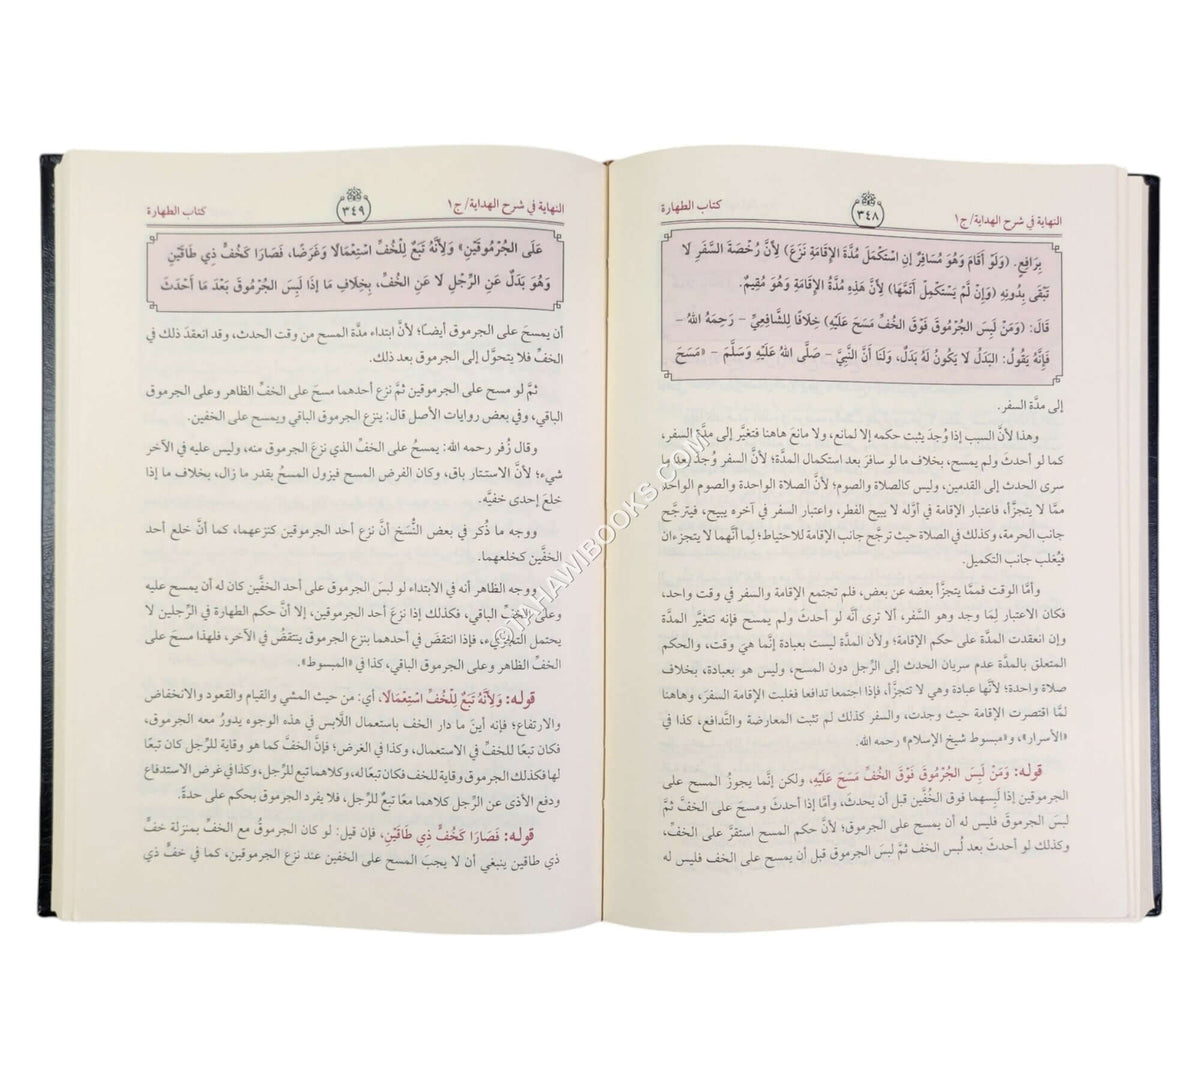 النهاية في شرح الهداية/ ج١
٣٤٨
كتاب الطهارة
بِرَافِعٍ. (وَلَوْ أَقَامَ وَهُوَ مُسَافِرٌ إِنِ اسْتَكْمَلَ مُدَّةَ الإِقَامَةِ نَزَعَ) لِأَنَّ رُخْصَةَ السَّفَرِ لَا
تَبْقَى بِدُونِهِ (وَإِنْ لَمْ يَسْتَكْمِلْ أَتَمَّهَا) لِأَنَّ هَذِهِ مُدَّةُ الإِقَامَةِ وَهُوَ مُقِيمٌ.
قَالَ: (وَمَنْ لَبِسَ الجُرْمُوقَ فَوْقَ الخُفِّ مَسَحَ عَلَيْهِ) خِلَافًا لِلشَّافِعِيِّ – رَحِمَهُ اللهُ –
فَإِنَّهُ يَقُولُ: البَدَلُ لَا يَكُونُ لَهُ بَدَلٌ، وَلَنَا أَنَّ النَّبِيَّ – صَلَّى اللهُ عَلَيْهِ وَسَلَّمَ – «مَسَحَ
إلى مدَّة السفر.
وهذا لأنَّ السبب إذا وُجدَ يثبت حكمه إلا لمانع، ولا مانعَ هاهنا فتغيَّر إلى مدَّة السفر،
كما لو أحدثَ ولم يمسح، بخلاف ما لو سافرَ بعد استكمال المدَّة؛ لأنَّ السفر وُجدَ بعدَ ما
سرى الحدث إلى القدمين، وليس كالصلاة والصوم؛ لأنَّ الصلاة الواحدة والصوم الواحد
ممَّا لا يتجزَّأ، فاعتبار الإقامة في أوَّله لا يبيح الفطر، واعتبار السفر في آخره يبيح، فيترجَّح
جانب الحرمة، وكذلك في الصلاة حيث ترجَّح جانب الإقامة للاحتياط؛ لِما أنَّهما لا يتجزءان
فيُغلب جانب التكميل.
وأمَّا الوقت فممَّا يتجزَّأ بعضه عن بعض، فلم تجتمع الإقامة والسفر في وقت واحد،
فكان الاعتبار لِمَا وجد وهو السَّفر، ألا ترى أنَّه لو أحدثَ ولم يمسح فإنه تتغيَّر المدَّة
وإن انعقدت المدَّة على حكم الإقامة؛ ولأن المدَّة ليست بعبادة إنَّما هيَ وقت، والحكم
المتعلق بالمدَّة عدم سريان الحدث إلى الرِّجل دون المسح، وليس هو بعبادة، بخلاف
صلاة واحدة؛ لأنَّها عبادة وهي لا تتجزَّأ، فإذا اجتمعا تدافعا فغلبت الإقامة السفرَ، وهاهنا
لمَّا اقتصرت الإقامة حيث وجدت، والسفر كذلك لم تثبت المعارضة والتَّدافع، كذا في
«الأسرار»، و«مبسوط شيخ الإسلام» رحمه الله.
قوله: وَمَنْ لَبِسَ الجُرْمُوقَ فَوْقَ الخُفِّ مَسَحَ عَلَيْهِ، ولكن إنَّما يجوزُ المسح على
الجرموقين إذا لَبِسهما فوق الخُفَّين قبل أن يحدثَ، وأمَّا إذا أحدثَ ومسحَ على الخفِّ ثمَّ
لبسَ الجرموقَ فليس له أن يمسح على الجرموق؛ لأنَّ حكم المسح استقرَّ على الخفِّ،
وكذلك لو أحدثَ بعد لُبس الخف ثمَّ لبسَ الجرموق قبل أن يمسح على الخف فليس له
النهاية في شرح الهداية/ ج١
٣٤٩
كتاب الطهارة
عَلَى الجُرْمُوقَيْنِ» وَلِأَنَّهُ تَبَعٌ لِلْخُفِّ اسْتِعْمَالًا وَغَرَضًا، فَصَارَا كَخُفٍّ ذِي طَاقَيْنِ
وَهُوَ بَدَلٌ عَنِ الرِّجْلِ لَا عَنِ الخُفِّ، بِخِلَافِ مَا إِذَا لَبِسَ الجُرْمُوقَ بَعْدَ مَا أَحْدَثَ
أن يمسحَ على الجرموق أيضاً؛ لأنَّ ابتداء مدَّة المسح من وقت الحدث، وقد انعقدَ ذلك في
الخفِّ فلا يتحوَّل إلى الجرموق بعد ذلك.
ثمَّ لو مسح على الجرموقين ثمَّ نزع أحدهما مسحَ على الخفِّ الظاهر وعلى الجرموق
الباقي، وفي بعض روايات الأصل قال: ينزع الجرموق الباقي ويمسح على الخفين.
وقال زُفر رحمه الله: يمسحُ على الخفِّ الذي نزعَ الجرموق منه، وليس عليه في الآخر
شيء؛ لأنَّ الاستتار باق، وكان الفرض المسح فيزول المسحُ بقدر ما زال، بخلاف ما إذا
خلعَ إحدى خفيَّه.
ووجه ما ذُكر في بعض النُّسَخ أنَّ نزع أحد الجرموقين كنزعهما، كما أنَّ خلع أحد
الخفَّين كخلعهما.
ووجه الظاهر أنه في الابتداء لو لبسَ الجرموق على أحد الخفَّين كان له أن يمسح عليه
وعلى الخفِّ الباقي، فكذلك إذا نزعَ أحد الجرموقين، إلا أنَّ حكم الطهارة في الرِّجلين لا
يحتمل التجزيء، فإذا انتقضَ في أحدهما بنزع الجرموق ينتقضُ في الآخر، فلهذا مسحَ على
الخفِّ الظاهر وعلى الجرموق الباقي، كذا في «المبسوط».
قوله: وَلِأَنَّهُ تَبَعٌ لِلْخُفِّ اسْتِعْمَالًا، أي: من حيث المشي والقيام والقعود والانخفاض
والارتفاع؛ فإنه أينَ ما دار الخف باستعمال اللَّابس في هذه الوجوه يدورُ معه الجرموق،
فكان تبعًا للخفِّ في الاستعمال، وكذا في الغرض؛ فإنَّ الخفَّ كما هو وقاية للرِّجل كان تبعًا
لها فكذلك الجرموق وقاية للخف فكان تبعًا له، وكلاهما تبع للرِّجل، وكذا في غرض الاستدفاع
ودفع الأذى عن الرِّجل كلاهما معًا تبعٌ للرِّجل، فلا يفرد الجرموق بحكم على حدةً.
قوله: فَصَارَا كَخُفٍّ ذِي طَاقَيْنِ، فإن قيل: لو كان الجرموقُ مع الخفِّ بمنزلة خفٍّ
ذي طاقين ينبغي أن لا يجبَ المسح على الخفين عند نزع الجرموقين، كما في خفٍّ ذي
©TAHAWIBOOKS.COM